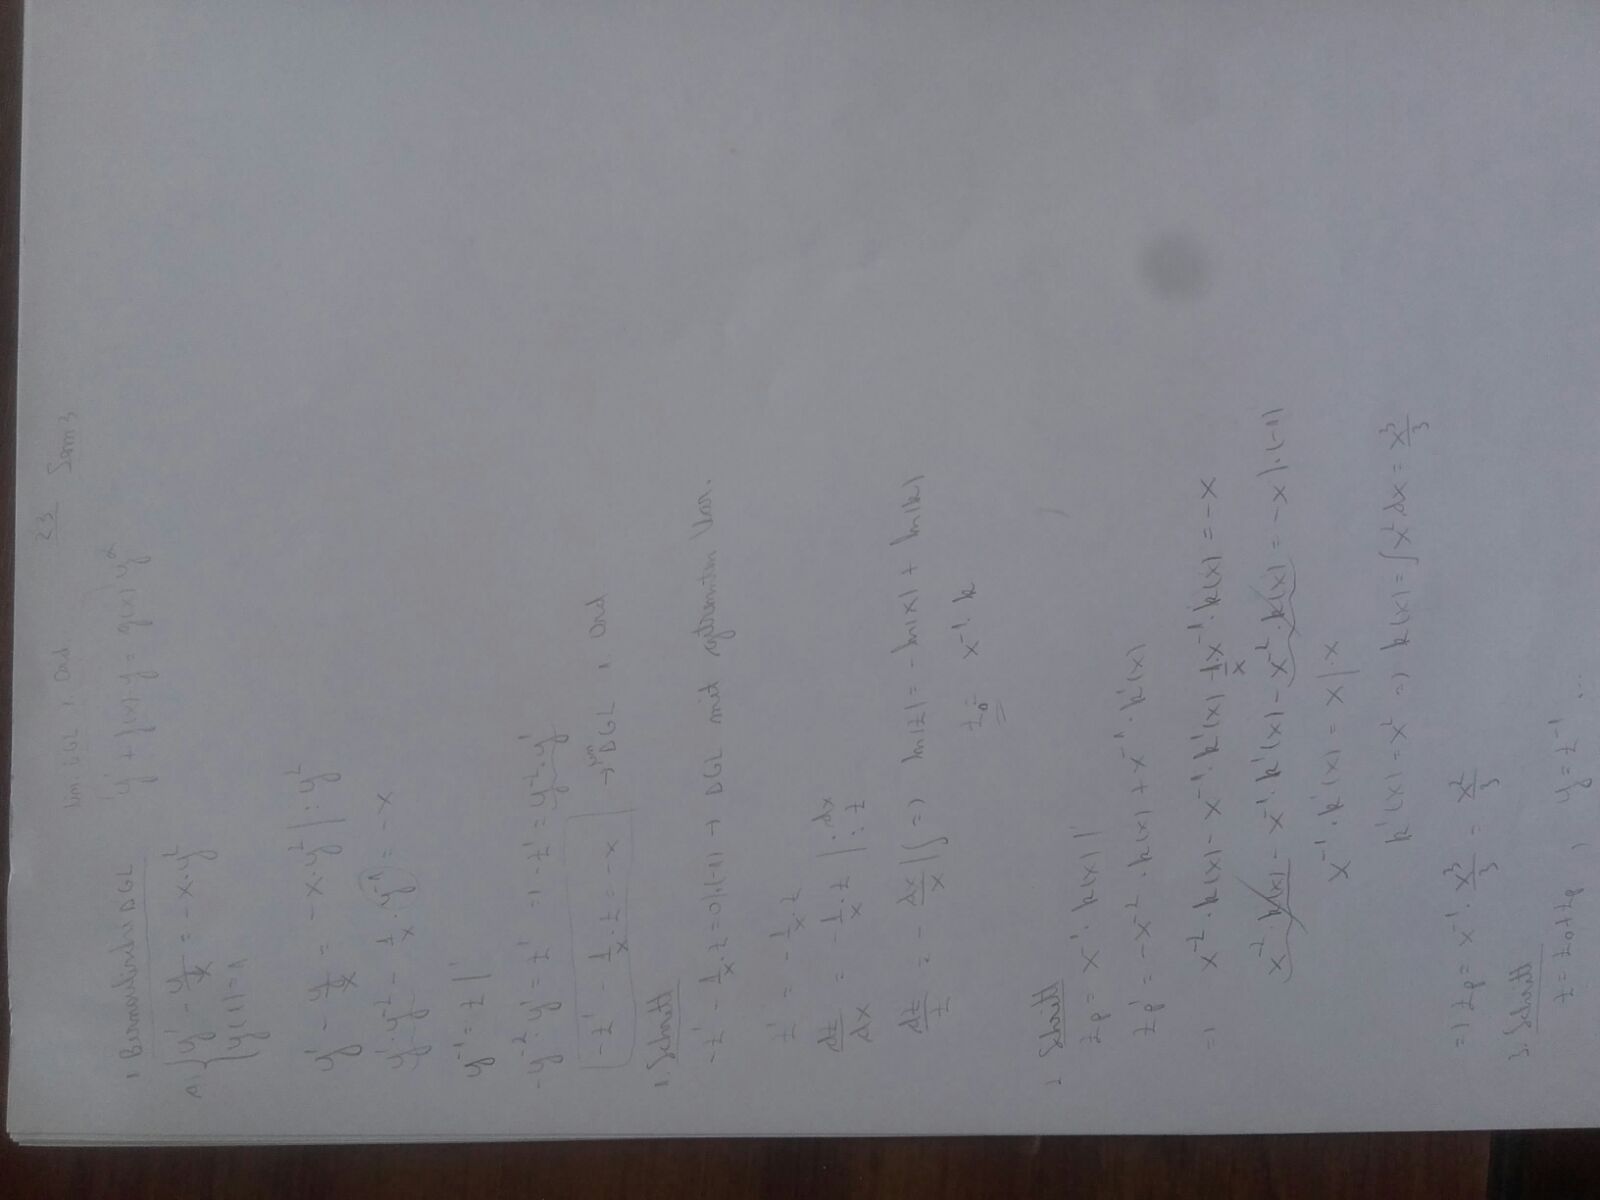 23 Sem 3
lin. DGL 1. Ord
1 Bernoulische DGL y' + f(x)·y = g(x)·y^α
A: { y' - y/x = -x·y²
{ y(1) = 1
y' - y/x = -x·y² | : y²
y'·y⁻² - 1/x · y⁻¹ = -x
y⁻¹ = z | '
-y⁻²·y' = z' => -z' = y⁻²·y'
-z' - 1/x · z = -x → lin DGL 1. Ord
1. Schritt
-z' - 1/x · z = 0 |·(-1) → DGL mit getrennten Var.
z' = - 1/x · z
dz/dx = - 1/x · z | · dx : z
dz/z = - dx/x | ∫ => ln|z| = - ln|x| + ln|k|
z₀ = x⁻¹ · k
2 Schritt
zₚ = x⁻¹ · k(x) | '
zₚ' = -x⁻² · k(x) + x⁻¹ · k'(x)
=> x⁻² · k(x) - x⁻¹ · k'(x) - 1/x · x⁻¹ · k(x) = -x
x⁻² · k(x) - x⁻¹ · k'(x) - x⁻² · k(x) = -x | ·(-1)
x⁻¹ · k'(x) = x | · x
k'(x) = x² => k(x) = ∫ x² dx = x³/3
=> zₚ = x⁻¹ · x³/3 = x²/3
3. Schritt
z = z₀ + zₚ , y = z⁻¹ ...